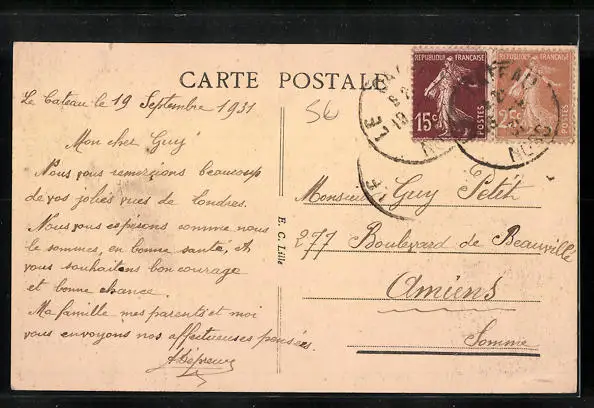 CARTE POSTALE
Le Cateau le 19 Septembre 1931
Mon cher Guy
Nous vous remercions beaucoup
de vos jolies vues de Londres.
Nous vous espérons comme nous
le sommes, en bonne santé, et
vous souhaitons bon courage
et bonne chance.
Ma famille mes parents et moi
vous envoyons nos affectueuses pensées.
E. C. Lille
56
REPUBLIQUE FRANÇAISE
15c
POSTES
REPUBLIQUE FRANÇAISE
25c
POSTES
LE CATEAU
NORD
Monsieur Guy Petit
277 Boulevard de Beauvillé
Amiens
Somme